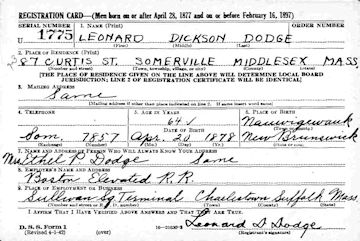 REGISTRATION CARD—(Men born on or after April 28, 1877 and on or before February 16, 1897)
SERIAL NUMBER
1. NAME (Print)
ORDER NUMBER
U 1775
LEONARD DICKSON DODGE
(First) (Middle) (Last)
2. PLACE OF RESIDENCE (Print)
287 CURTIS ST. SOMERVILLE MIDDLESEX MASS
(Number and street) (Town, township, village, or city) (County) (State)
[THE PLACE OF RESIDENCE GIVEN ON THE LINE ABOVE WILL DETERMINE LOCAL BOARD
JURISDICTION; LINE 2 OF REGISTRATION CERTIFICATE WILL BE IDENTICAL]
3. MAILING ADDRESS
Same
[Mailing address if other than place indicated on line 2. If same insert word same]
4. TELEPHONE
5. AGE IN YEARS
6. PLACE OF BIRTH
64
DATE OF BIRTH
Som. 7857
Apr. 20 1878
New Brunswick
7. NAME AND ADDRESS OF PERSON WHO WILL ALWAYS KNOW YOUR ADDRESS
Mrs Ethel P. Dodge Same
8. EMPLOYER'S NAME AND ADDRESS
Boston Elevated R.R.
9. PLACE OF EMPLOYMENT OR BUSINESS
Sullivan Sq Terminal Charlestown Suffolk Mass.
I AFFIRM THAT I HAVE VERIFIED ABOVE ANSWERS AND THAT THEY ARE TRUE.
D. S. S. Form 1
(Revised 4-1-42) (over)
Leonard D Dodge
(Registrant's signature)